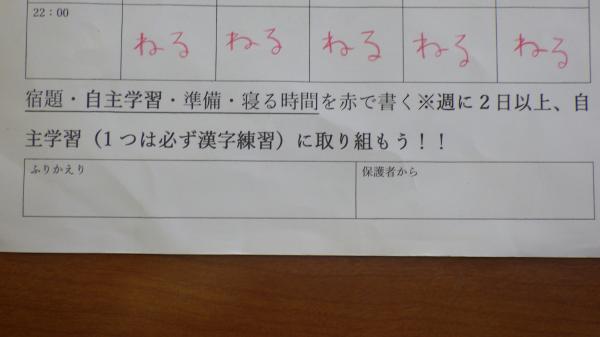 22:00
ねる ねる ねる ねる ねる
宿題・自主学習・準備・寝る時間を赤で書く※週に2日以上、自
主学習(1つは必ず漢字練習)に取り組もう!!
ふりかえり 保護者から